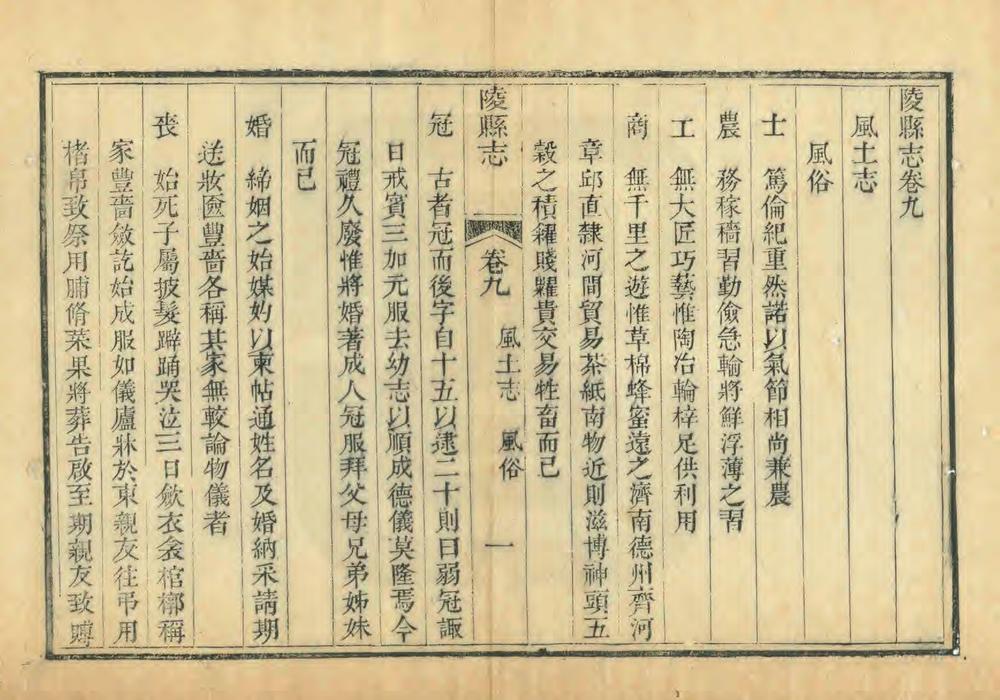 陵縣志卷九
風土志
風俗
士 篤倫紀重然諾以氣節相尚兼農
農 務稼穡習勤儉急輸將鮮浮薄之習
工 無大匠巧藝惟陶冶輪梓足供利用
商 無千里之遊惟草棉蜂蜜遠之濟南德州齊河
章邱直隸河間貿易茶紙南物近則滋博神頭五
穀之積糴賤糶貴交易牲畜而已
陵縣志 卷九 風土志 風俗 一
冠 古者冠而後字自十五以逮二十則曰弱冠諏
日戒賓三加元服去幼志以順成德儀莫隆焉今
冠禮久廢惟將婚著成人冠服拜父母兄弟姊妹
而已
婚 締姻之始媒妁以柬帖通姓名及婚納采請期
送妝奩豐嗇各稱其家無較論物儀者
喪 始死子屬披髮躃踊哭泣三日斂衣衾棺槨稱
家豐嗇斂訖始成服如儀廬牀於東親友往弔用
楮帛致祭用脯脩菜果將葬告啟至期親友致賻